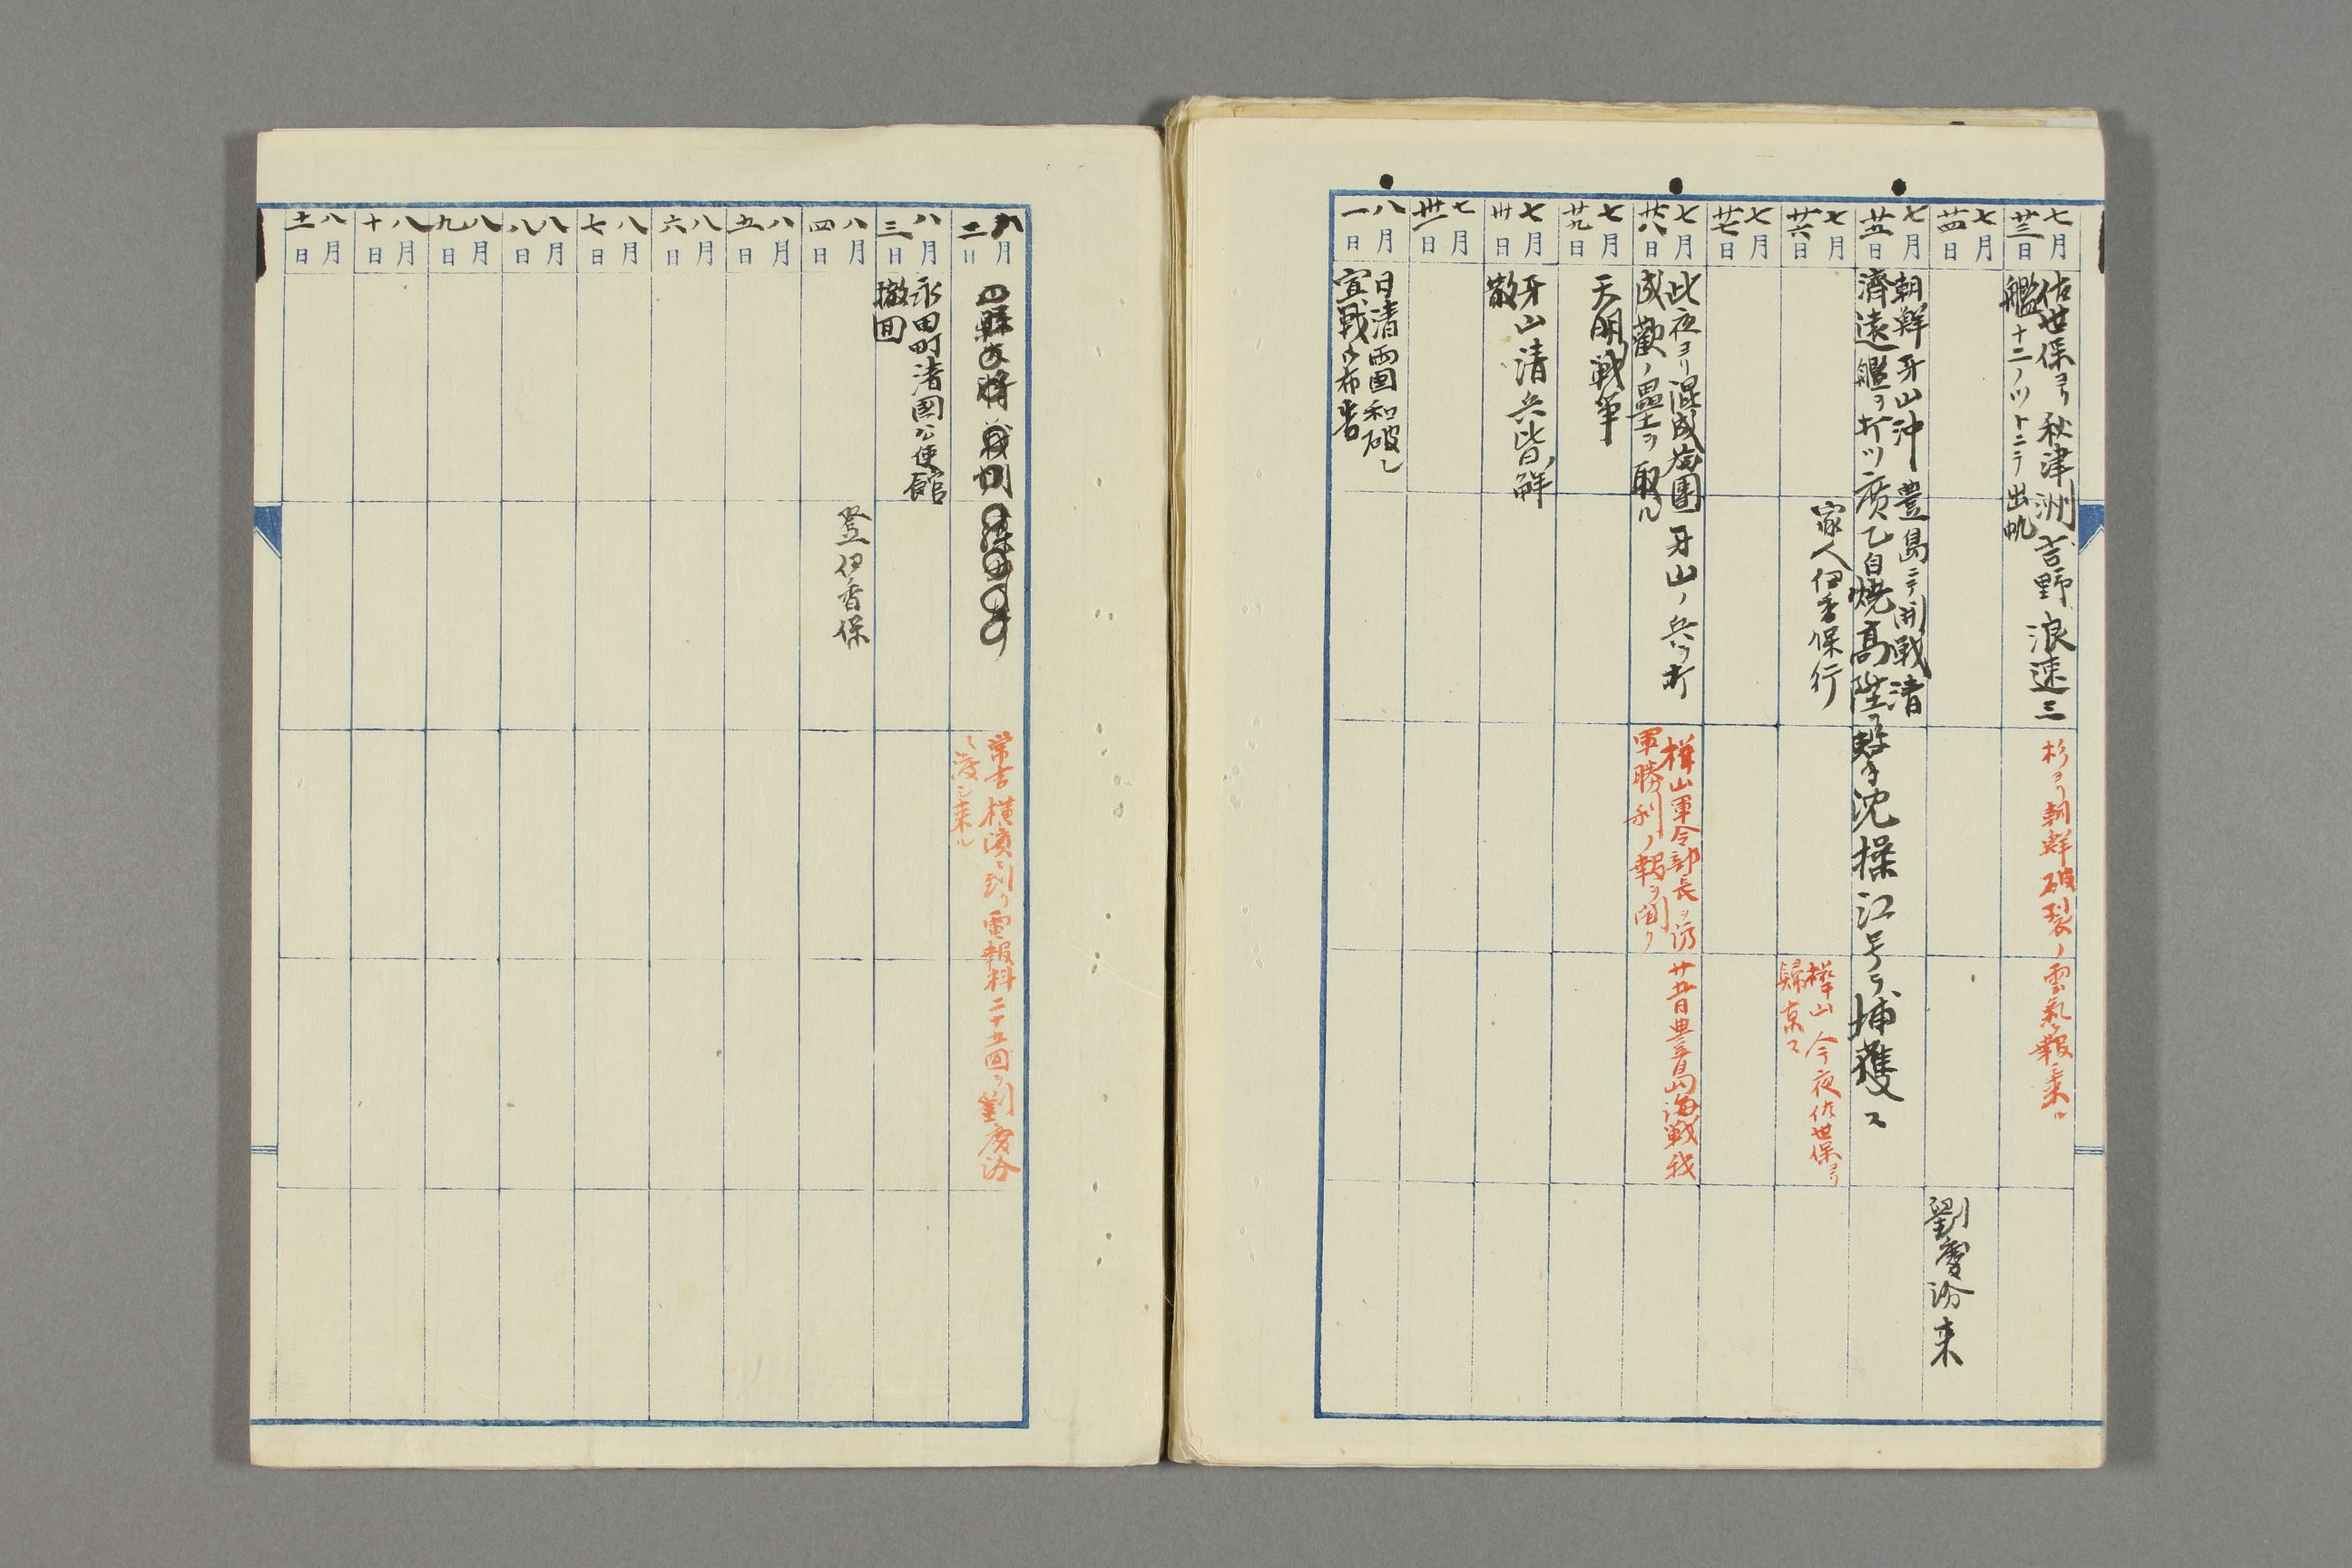 七月
廿三日
佐世保ヨリ秋津洲吉野浪速三
艦十二ノットニテ出帆
杉ヨリ朝鮮破裂ノ雲氣報来ル
七月
廿四日
劉慶汾来
七月
廿五日
朝鮮牙山沖豊島ニテ開戦清
濟遠艦ヲ打ツ廣乙自焼高陞ヲ撃チ沈操江号ヲ捕獲ス
七月
廿六日
家人伊香保行
樺山今夜佐世保ヨリ
歸京ス
七月
廿七日
七月
廿八日
此夜ヨリ混成旅團牙山ノ兵ヲ打
成歡ノ壘ヲ取ル
樺山軍令部長ヲ訪廿五日豊島海戦我
軍勝利ノ報ヲ聞ク
七月
廿九日
天明戦争
七月
卅日
牙山清兵皆鮮
散
七月
卅一日
八月
一日
日清両国和破レ
宣戦ヲ布告
八月
二日
常吉横濱ニ到リ電報料二十五円ヲ劉慶汾
ニ渡シ来ル
八月
三日
永田町清国公使館
撤回
八月
四日
登伊香保
八月
五日
八月
六日
八月
七日
八月
八日
八月
九日
八月
十日
八月
十一日